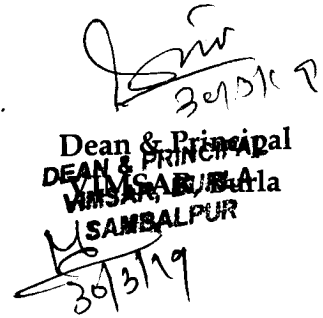 30/3/19
Dean & Principal
VIMSAR, Burla
DEAN & PRINCIPAL
VIMSAR, BURLA
SAMBALPUR
30/3/19